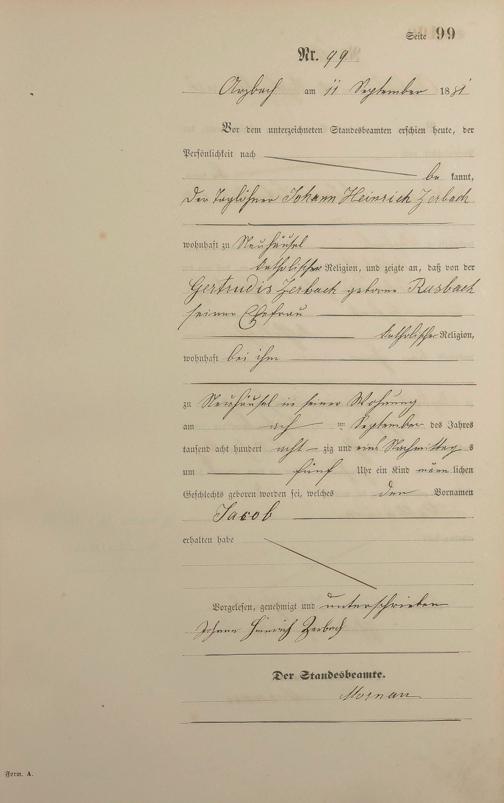 Seite 99
Nr. 99
Arzbach am 11 September 1881
Vor dem unterzeichneten Standesbeamten erschien heute, der
Persönlichkeit nach
be kannt,
der Taglöhner Johann Heinrich Zerbach
wohnhaft zu Neuhäusel
katholischer Religion, und zeigte an, daß von der
Gertrudis Zerbach geborne Rusbach
seiner Ehefrau
katholischer Religion,
wohnhaft bei ihm
zu Neuhäusel in seiner Wohnung
am ach September des Jahres
tausend acht hundert acht zig und eins Nachmittag s
um fünf Uhr ein Kind männ lichen
Geschlechts geboren worden sei, welches den Vornamen
Jacob
erhalten habe
Vorgelesen, genehmigt und unterschrieben
Johann Heinrich Zerbach
Der Standesbeamte.
Form. A.